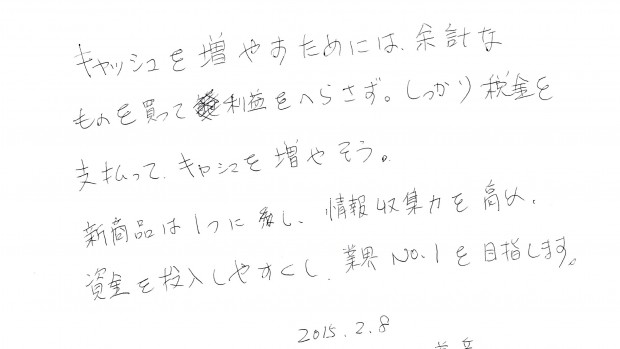 キャッシュを増やすためには、余計な
ものを買って利益をへらさず。しっかり税金を
支払って、キャシュを増やそう。
新商品は1つに し、情報収集力を高め、
資金を投入しやすくし、業界NO.1を目指します。
2015.2.8